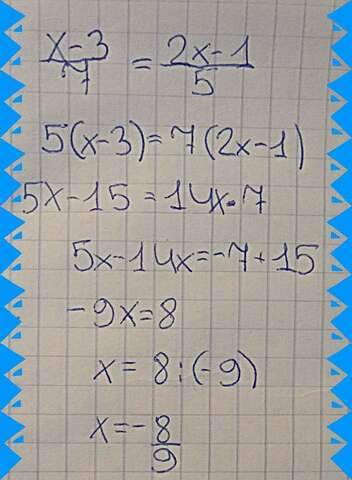 x-3/7 = 2x-1/5
5(x-3)=7(2x-1)
5x-15=14x-7
5x-14x=-7+15
-9x=8
x=8:(-9)
x=-8/9